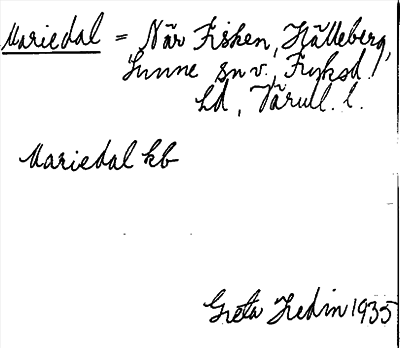 Mariedal = När Fisken, Hälleberg,
Sunne sn v., Fryksd.
hd, Värml. l.
Mariedal kb
Greta Hedin 1935